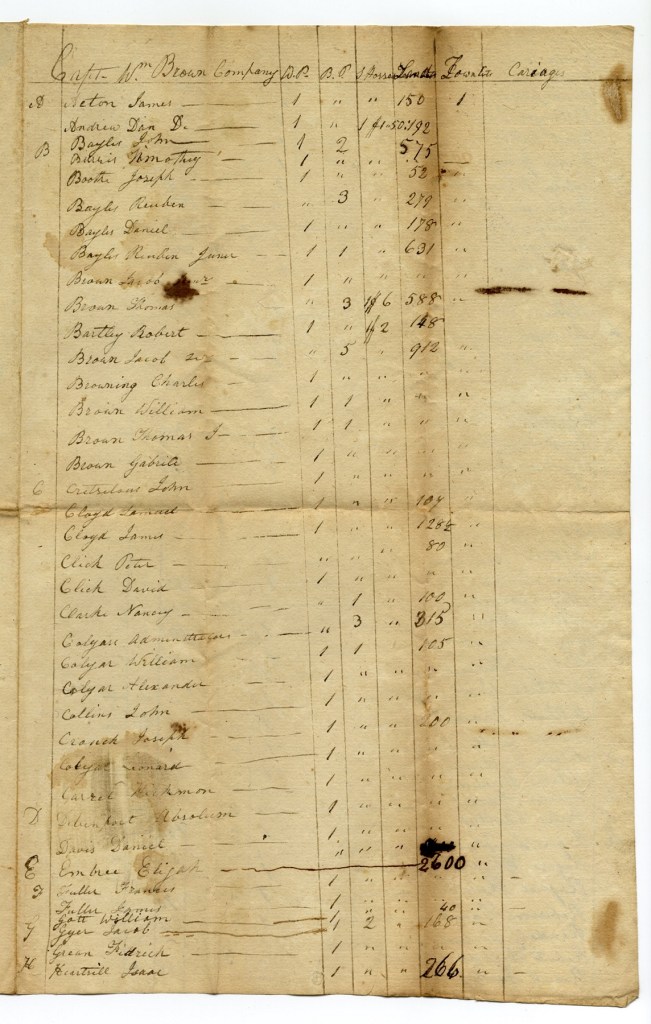 Capt Wm Brown Company W.P. B.P. S Horses Lands Townlots Cariages
A Acton James 1 " " 150 1
Andrew Dan D. 1 " 1 $1=50: 192
B Bayles John 1 2 575
Burris Timothey 1 " "
Boothe Joseph 1 " " 52 "
Bayles Reuden " 3 " 279 "
Bayles Daniel 1 " " 178 "
Bayles Reuden Junr 1 1 " 631 "
Brown Jacob 1 " " " "
Brown Thomas " 3 1 $6 588 "
Bartley Robert 1 " 1 $2 148
Brown Jacob " 5 " 912 "
Browning Charles 1 " " " "
Brown William 1 1 " " "
Brown Thomas J 1 1 " " "
Brown Gabrile 1 " " " "
C John 1 " " " "
Cloyd Samuel 1 " " 107 "
Cloyd James 1 " " 128½ "
Click Peter " " " 80 "
Click David 1 " " " "
Clarke Nancy " 1 " 100 "
Colyar Adminstrators " 3 " 315 "
Colyar William 1 1 " 105 "
Colyar Alexander 1 " " " "
Collins John 1 " " " "
Crouch Joseph 1 " " 200 "
Colyar Leonard 1 " " " "
Carrel Hickmon 1 " " " "
D Devenport Absolum 1 " " " "
Davis Daniel 1 " " " "
E Embree Elijah " " " 2600 "
F Fuller Frances 1 " " " "
Fuller James " " 40 "
Gott William 1 2 " 168 "
G Gyer Jacob 1 " " " "
Grean Fidrich 1 " " " "
H Heartrill Isaac 1 " " 266 "